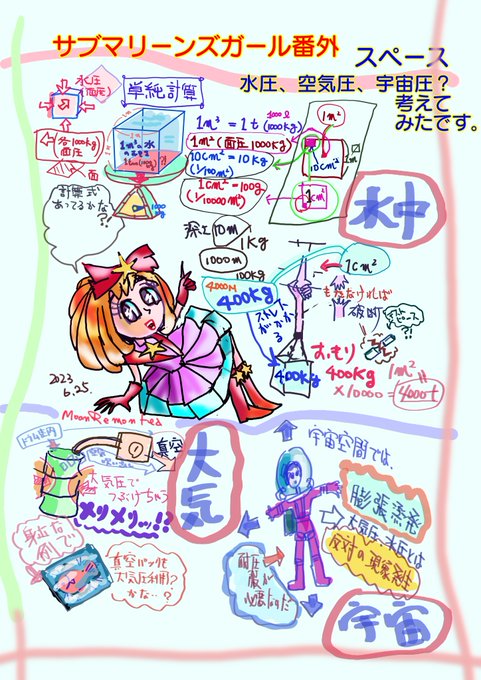 サブマリーンズガール番外
スペース
水圧、空気圧、宇宙圧?
考えて
みたです。
水圧
単純計算
1m²=1t(1000kg)
1m²(面圧1000kg)
10cm²=10kg
(1/100m²)
1cm²=100g
(1/10000m²)
1m²
1m
10cm²
1cm²
各1000kg
面圧
面
計算式
あってるかな
?
水中
深さ10m
1kg
1000m
100kg
4000m
400kg
ストレスがかかる
1cm²
もたなければ
破断
400kg
おもり
400kg
1m²
×10000=4000t
2023
6.25
MoonRemonted
ドラム缶内
真空
大気圧で
つぶけちゃう
メリメリッ!?
大気
身近な
例で
真空パックも
大気圧利用?
かな・・?
宇宙空間では、
膨張蒸発
大気圧、水圧とは
反対の現象発生
耐圧
服が
必要なのだ
宇宙